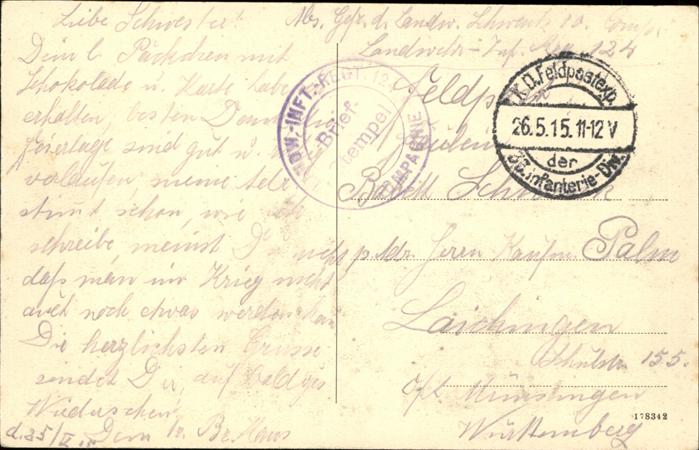 Liebe Schwester!
Dein l. Päckchen mit
Schokolade u. Karte habe
erhalten, besten Dank
Feiertage sind gut
verlaufen, meine
stimt schon, wie ich
schreibe, meinst Du nicht
daß man im Krieg nicht
auch noch etwas werden kann
Die herzlichsten Grüsse
sendet Dir, auf baldges
Wiedersehen
Dein Br. Hans
d. 25/V 15
Abs. Gefr. d. Landw. 10. Comp.
Landwehr-Inf. Reg. 124
Feldpost
LDW.-INFT.-REGT. 124
Brief-
stempel
KOMPAGNIE
K.D. Feldpostexp.
26.5.15.11-12V
der
Infanterie-Div.
Fräulein
p. Adr. Herrn Kaufm. Palm
Laichingen
Schulstr. 155.
O/A. Münsingen
Württemberg
178342